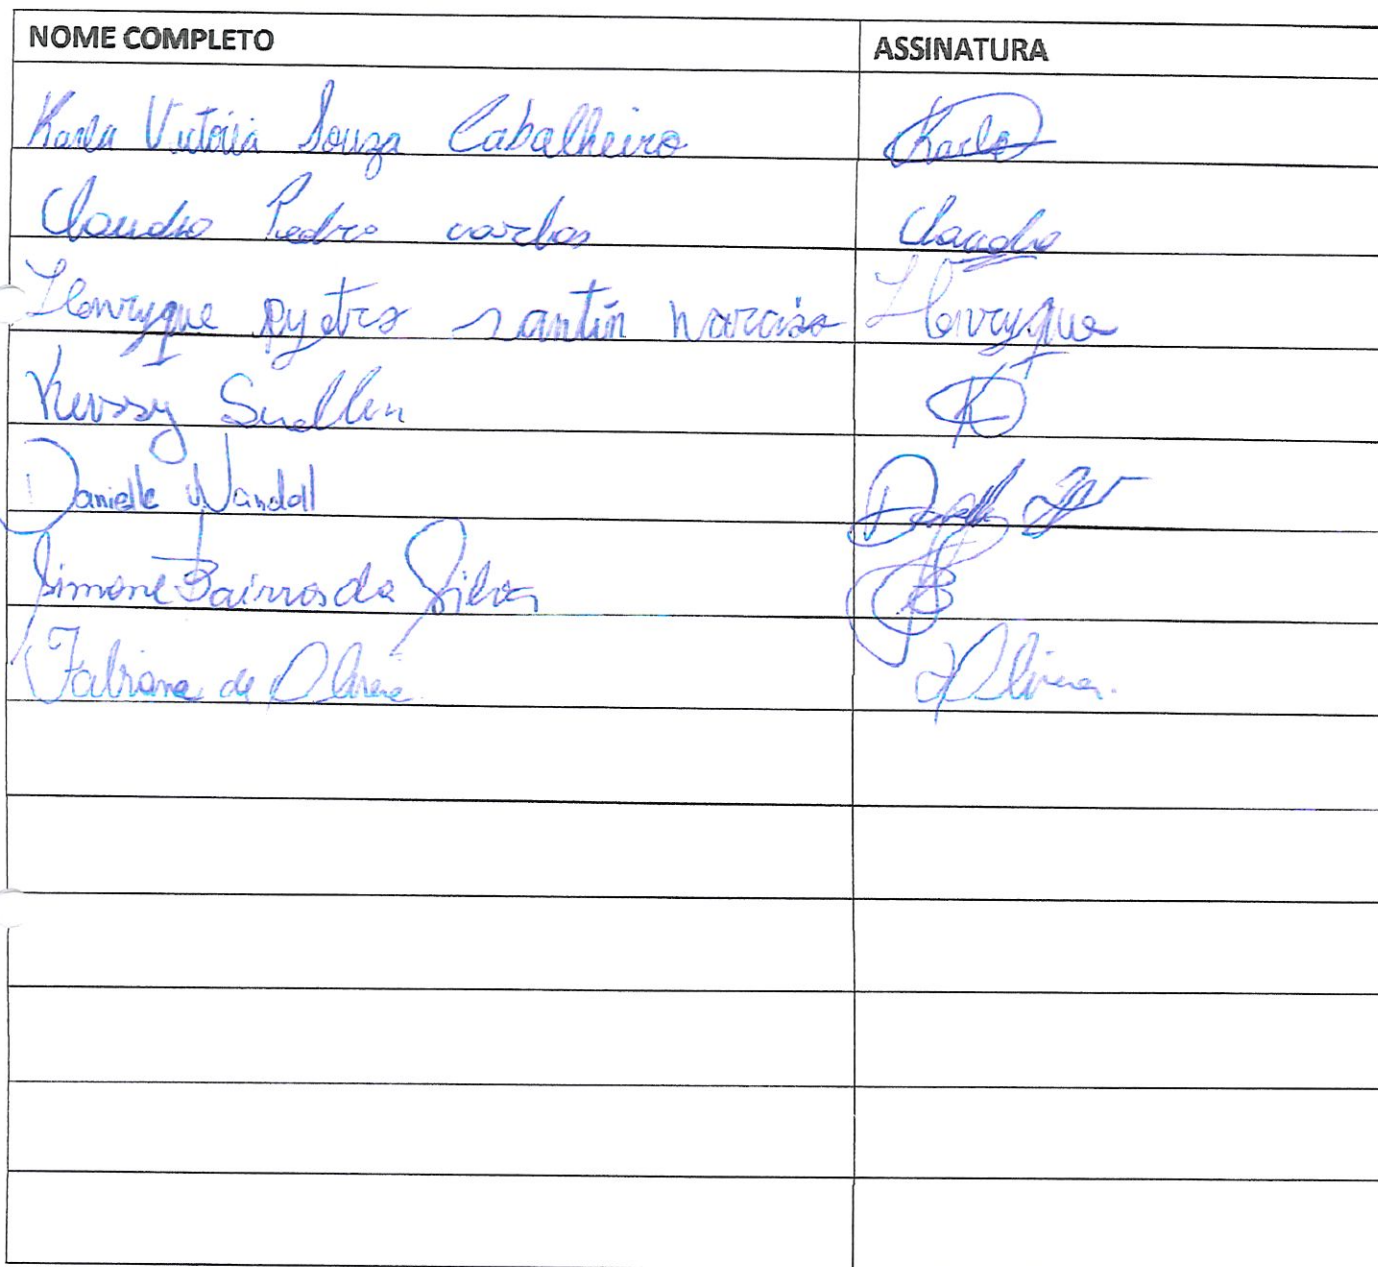 NOME COMPLETO ASSINATURA
Karla Victória Souza Cabalheiro Karla
Claudio Pedro carlos Claudio
Henryque pyetro santin narciso Henryque
Kerssy Suellen K
Danielle Wandall
Simone Bairros da Silva B
Fabiana de Oliveira Oliveira.